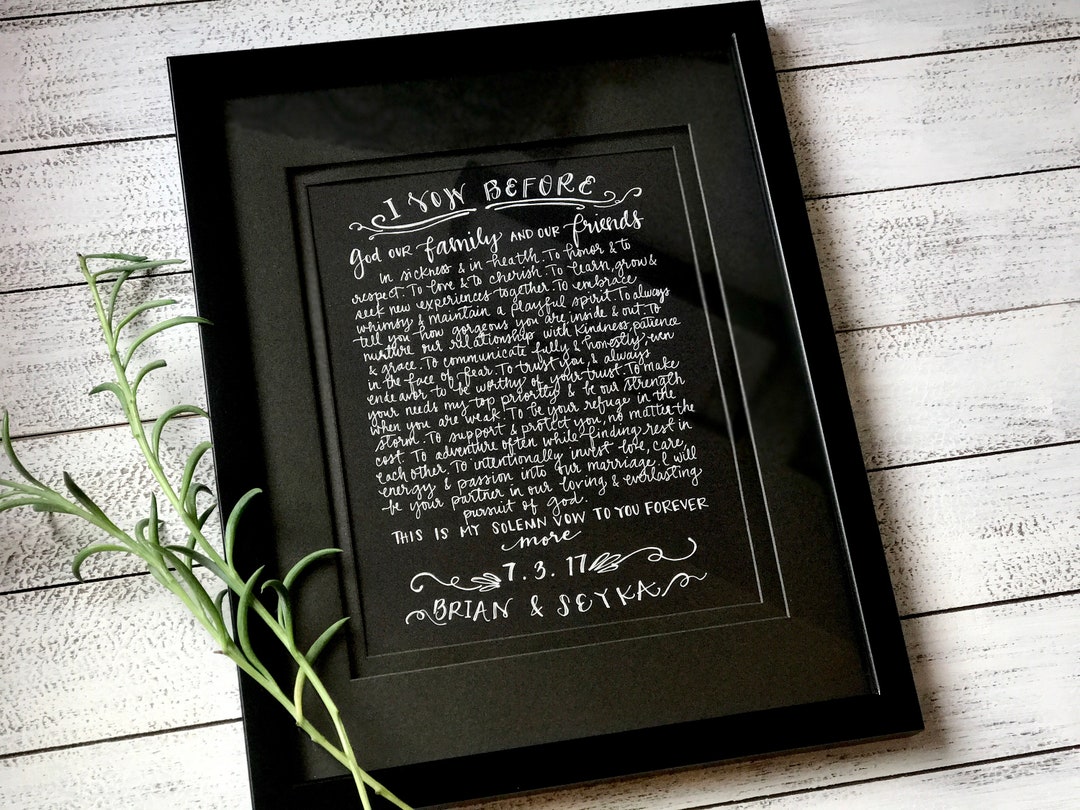 I VOW BEFORE
God OUR family AND OUR friends
in sickness & in health. To honor & to
respect. To love & to cherish. To learn, grow &
seek new experiences together. To embrace
whimsy & maintain a playful spirit. To always
tell you how gorgeous you are inside & out. To
nurture our relationship with kindness, patience
& grace. To communicate fully & honestly, even
in the face of fear. To trust you, & always
endeavor to be worthy of your trust. To make
your needs my top priority & be our strength
when you are weak. To be your refuge in the
storm. To support & protect you, no matter the
cost. To adventure often while finding rest in
each other. To intentionally invest love, care,
energy & passion into our marriage. I will
be your partner in our loving & everlasting
pursuit of God.
THIS IS MY SOLEMN VOW TO YOU FOREVER
more
7.3.17
BRIAN & SEYKA